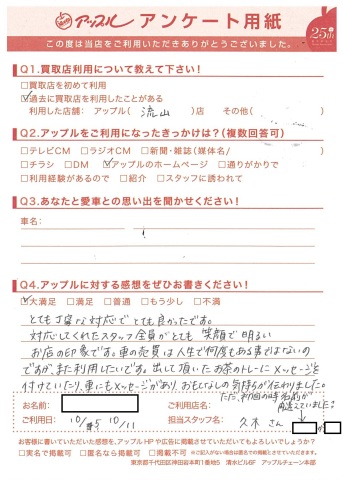 アップル アンケート用紙
25th
この度は当店をご利用いただきありがとうございました。
Q1.買取店利用について教えて下さい!
□買取店を初めて利用
☑過去に買取店を利用したことがある
利用した店舗: アップル( 流山 )店 その他( )
Q2.アップルをご利用になったきっかけは?(複数回答可)
□テレビCM □ラジオCM □新聞・雑誌(媒体名/ )
□チラシ □DM ☑アップルのホームページ □通りがかりで
□利用経験があるので □紹介 □スタッフに誘われて
Q3.あなたと愛車との思い出を聞かせください!
車名:
Q4.アップルに対する感想をぜひお書きください!
☑大満足 □満足 □普通 □もう少し □不満
とても丁寧な対応でとても良かったです。
対応してくれたスタッフ全員がとても笑顔で明るい
お店の印象です。車の売買は人生で何度もある事ではないの
ですが、また利用したいです。出して頂いたお茶のトレーにメッセージを
付けていたり、車にもメッセージがあり、おもてなしの気持ちが伝わりました。
ただ、初回の時名前が
間違えていました。
お名前: ご利用店名:
ご利用日: 10/5 10/11 担当スタッフ名: 久木さん
お客様に書いていただいた感想を、アップルHPや広告に掲載させていただいてもよろしいでしょうか?
□実名で掲載可 □匿名なら掲載可 □掲載不可 ※ご記入がない場合は匿名での掲載とさせていただきます。
東京都千代田区神田岩本町1番地5 清水ビル6F アップルチェーン本部